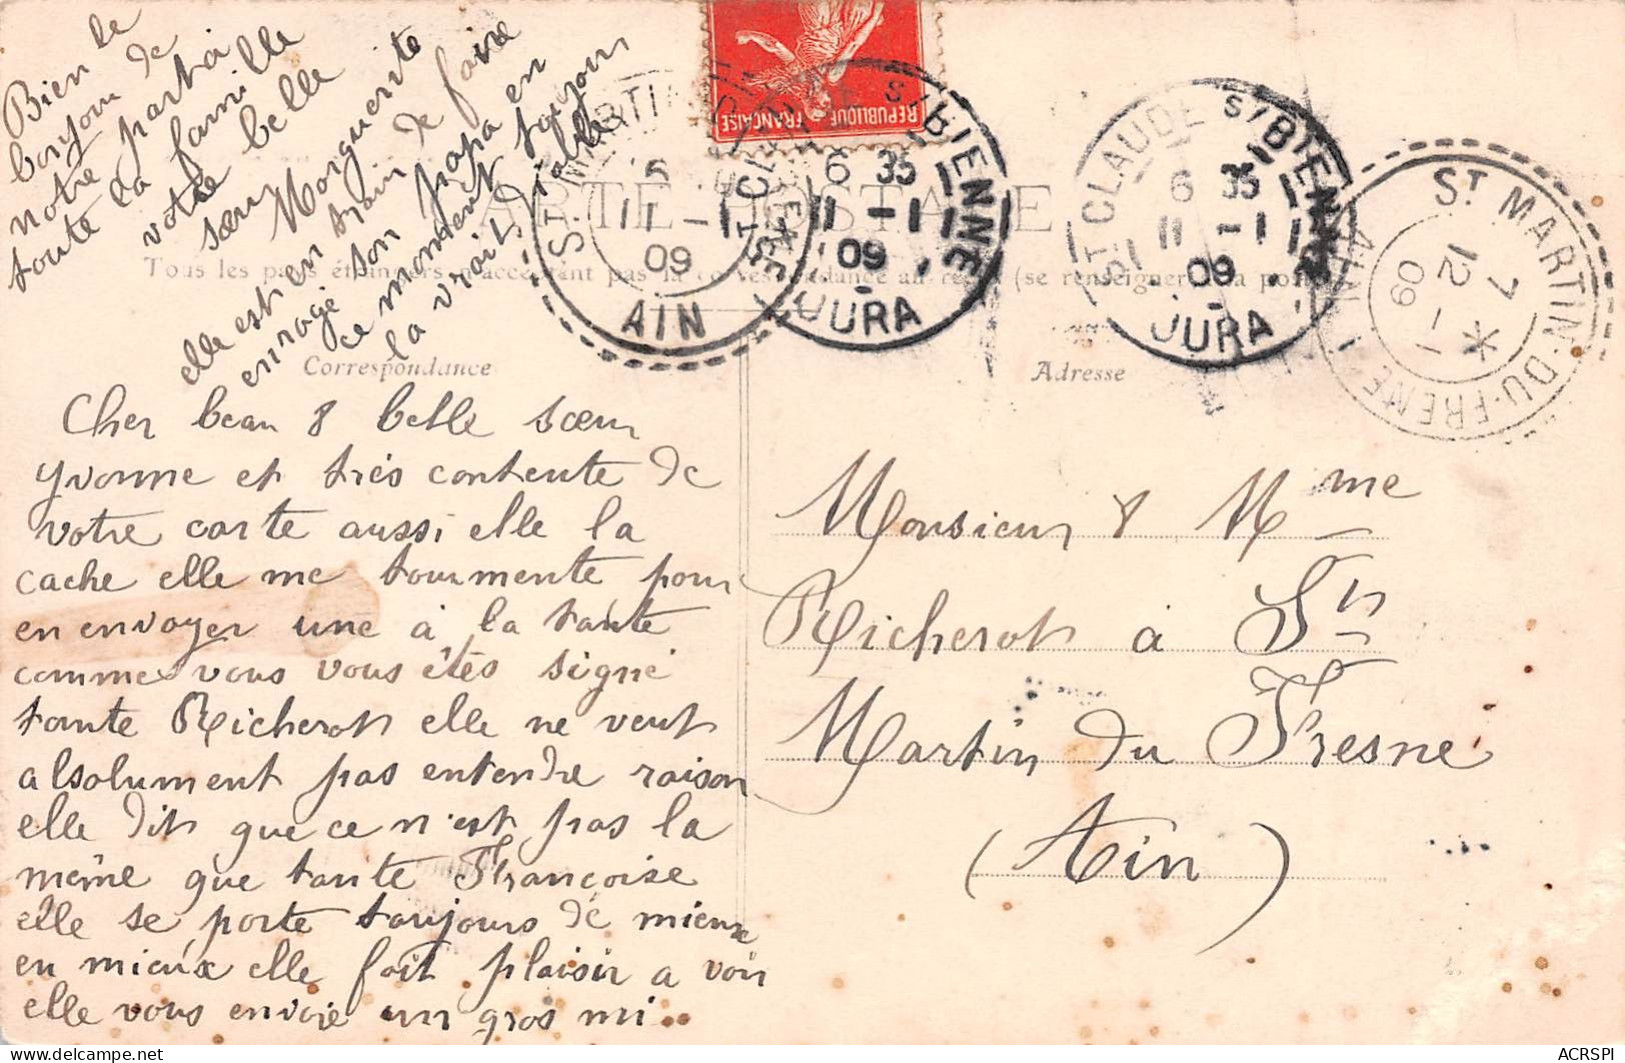 Bien le
bonjour de
notre part à
toute la famille
votre belle
sœur Marguerite
elle est en train de faire
enragé son papa en
ce moment toujours
la vrait diable
REPUBLIQUE FRANÇAISE
CARTE POSTALE
Tous les pays étrangers n'acceptent pas la correspondance au recto (se renseigner à la poste)
Correspondance
Adresse
ST CLAUDE S/BIENNE
6 35
11 -1
09
JURA
ST CLAUDE S/BIENNE
6 35
11 -1
09
JURA
6
11 -1
09
AIN
ST MARTIN-DU-FRENE
7
12 -1
09
AIN
Cher beau & belle sœur
Yvonne et très contente de
votre carte aussi elle la
cache elle me tourmente pour
en envoyer une à la tante
comme vous vous êtés signé
tante Richerot elle ne veut
alsolument pas entendre raison
elle dit que ce n'est pas la
même que tante Françoise
elle se porte toujours de mieux
en mieux elle fait plaisir a voir
elle vous envoie un gros mi..
Monsieur & Mme
Richerot à St
Martin du Fresne
(Ain)
ACRSPI